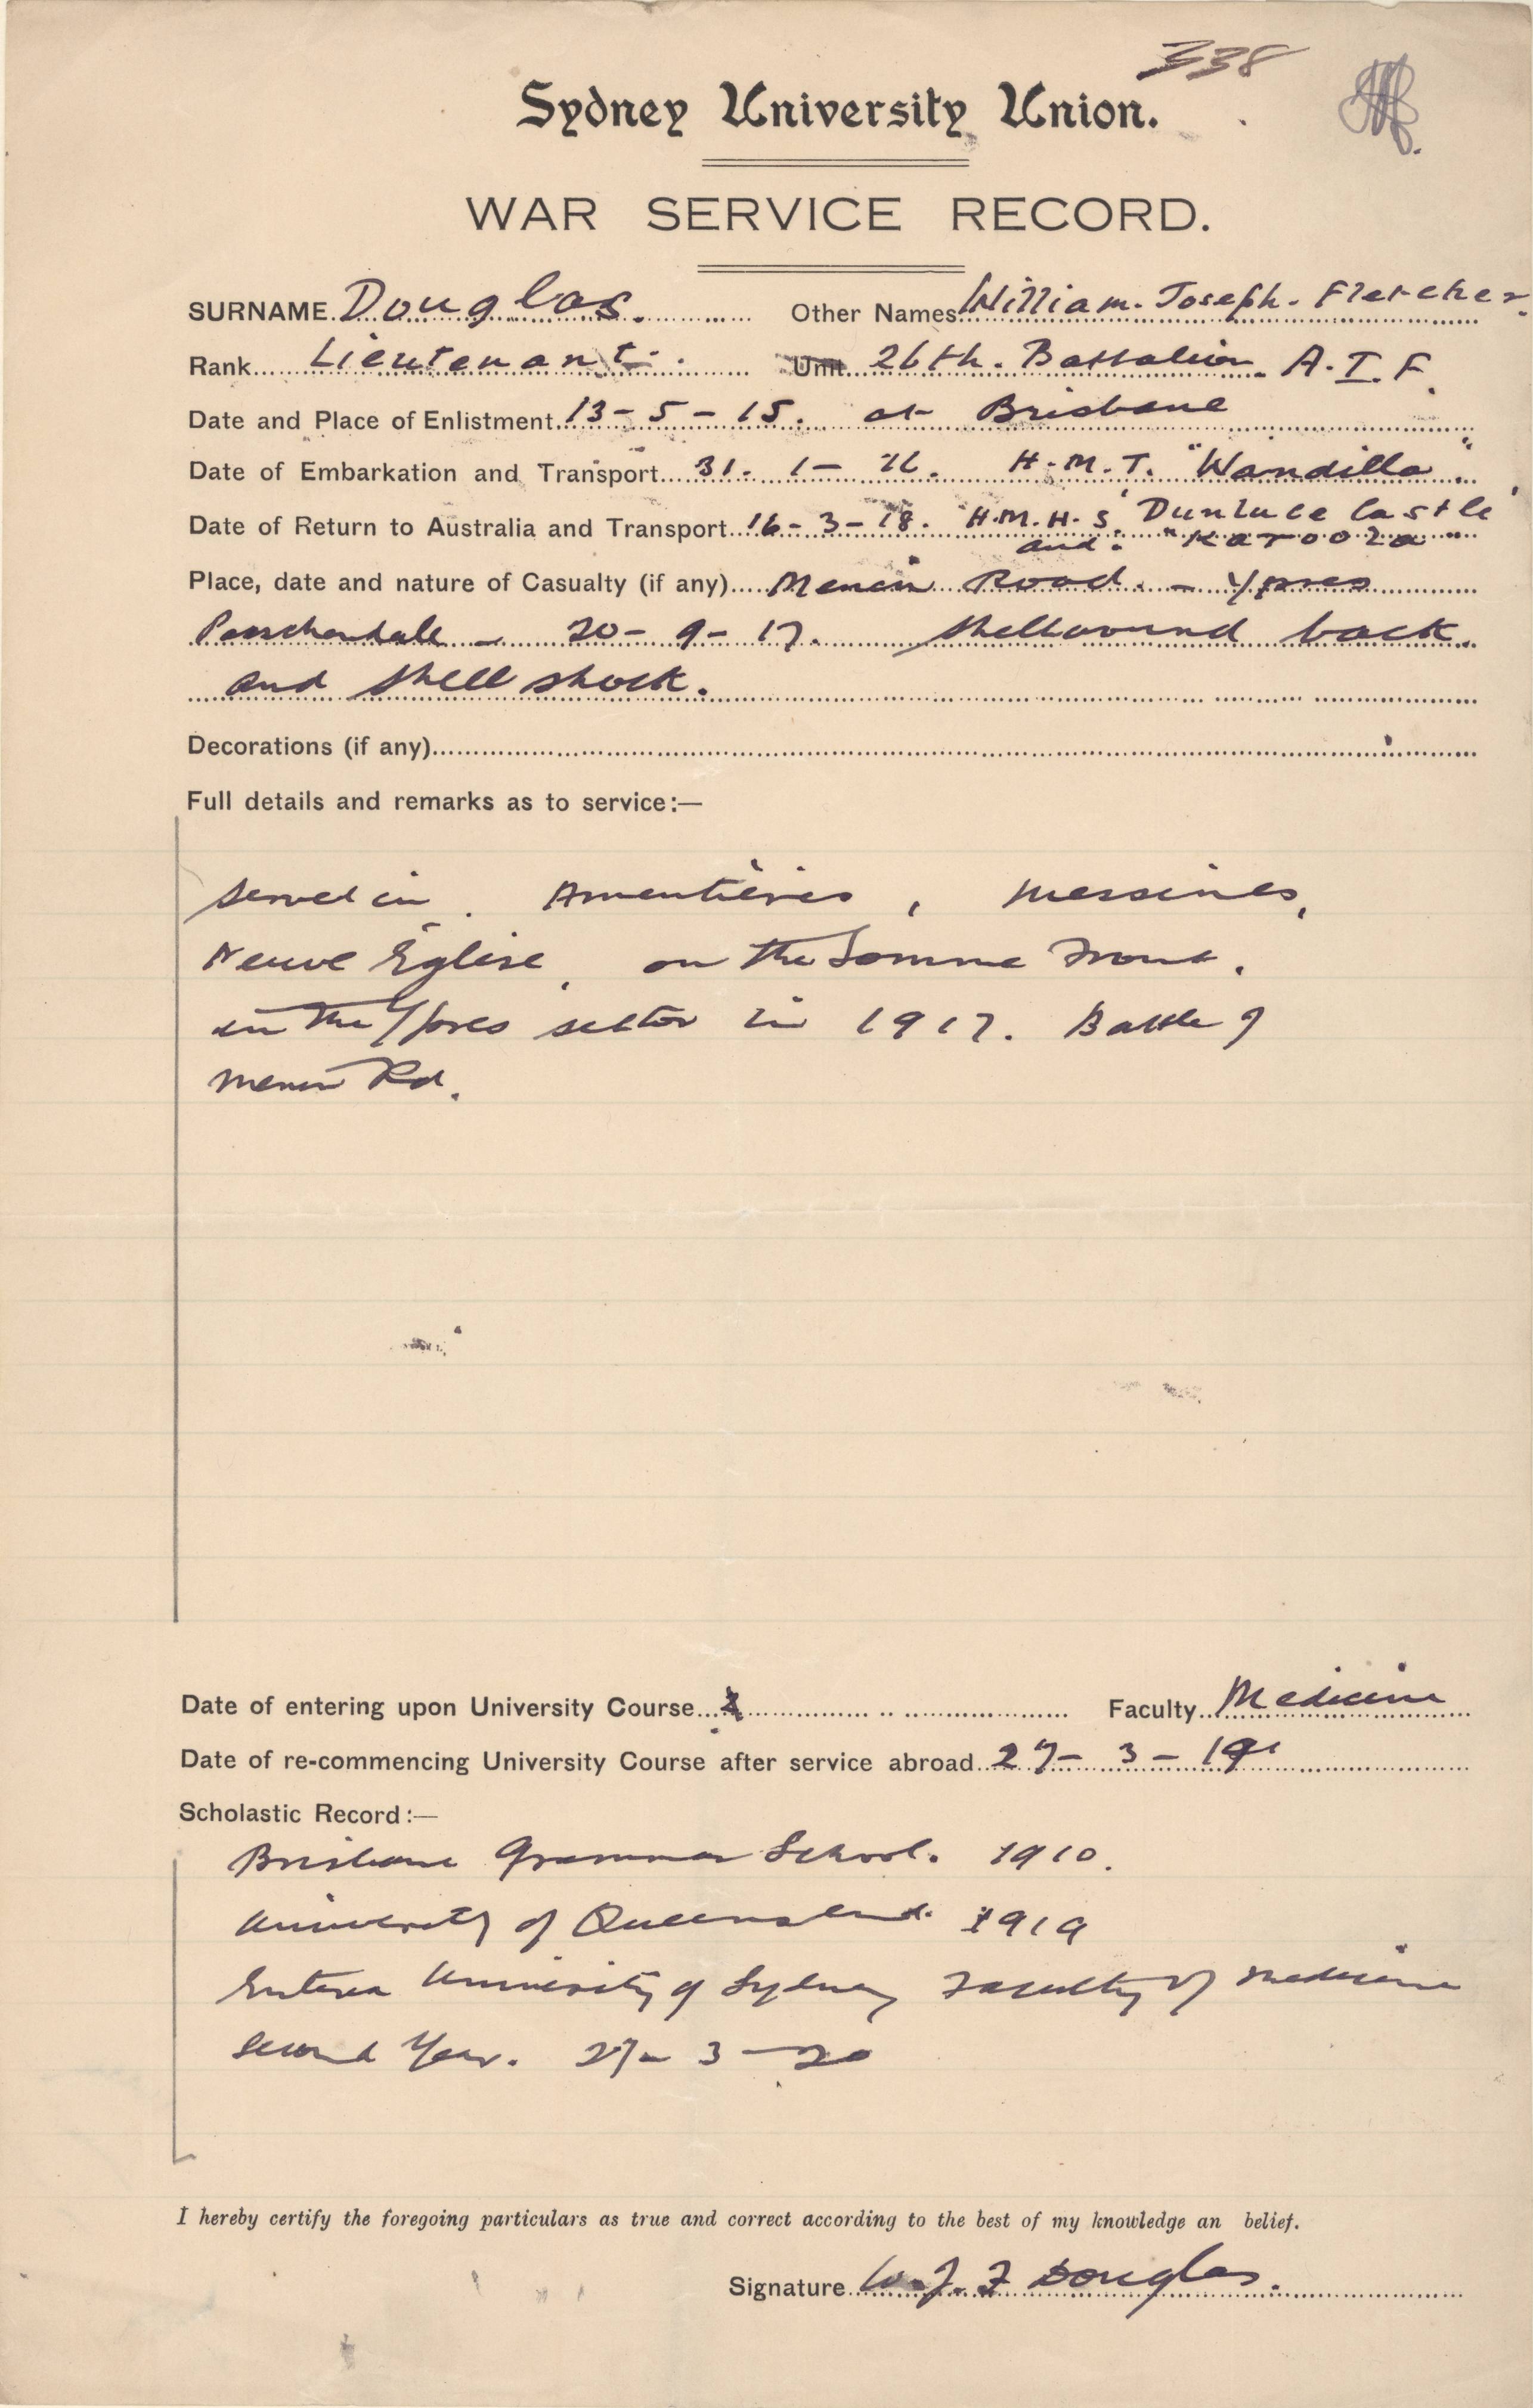 338
Sydney University Union.
WAR SERVICE RECORD.
SURNAME Douglas. Other Names William. Joseph. Fletcher.
Rank Lieutenant. Unit 26th. Battalion. A.I.F.
Date and Place of Enlistment 13-5-15. at Brisbane
Date of Embarkation and Transport 31-1-16. H.M.T. "Wandilla".
Date of Return to Australia and Transport 16-3-18. H.M.H.S. "Dunluce Castle"
and "Karoola"
Place, date and nature of Casualty (if any) Menin Road. - Ypres
Passchendale - 20-9-17. Shellwound back.
and Shell shock.
Decorations (if any)
Full details and remarks as to service:—
Served in. Armentières, Messines,
Neuve Église, on the Somme Front.
in the Ypres sector in 1917. Battle of
Menin Rd.
Date of entering upon University Course Faculty Medicine
Date of re-commencing University Course after service abroad 27-3-19
Scholastic Record:—
Brisbane Grammar School. 1910.
University of Queensland. 1919
Enters University of Sydney Faculty of Medicine
Second Year. 27-3-20
I hereby certify the foregoing particulars as true and correct according to the best of my knowledge an belief.
Signature W.J.F Douglas.